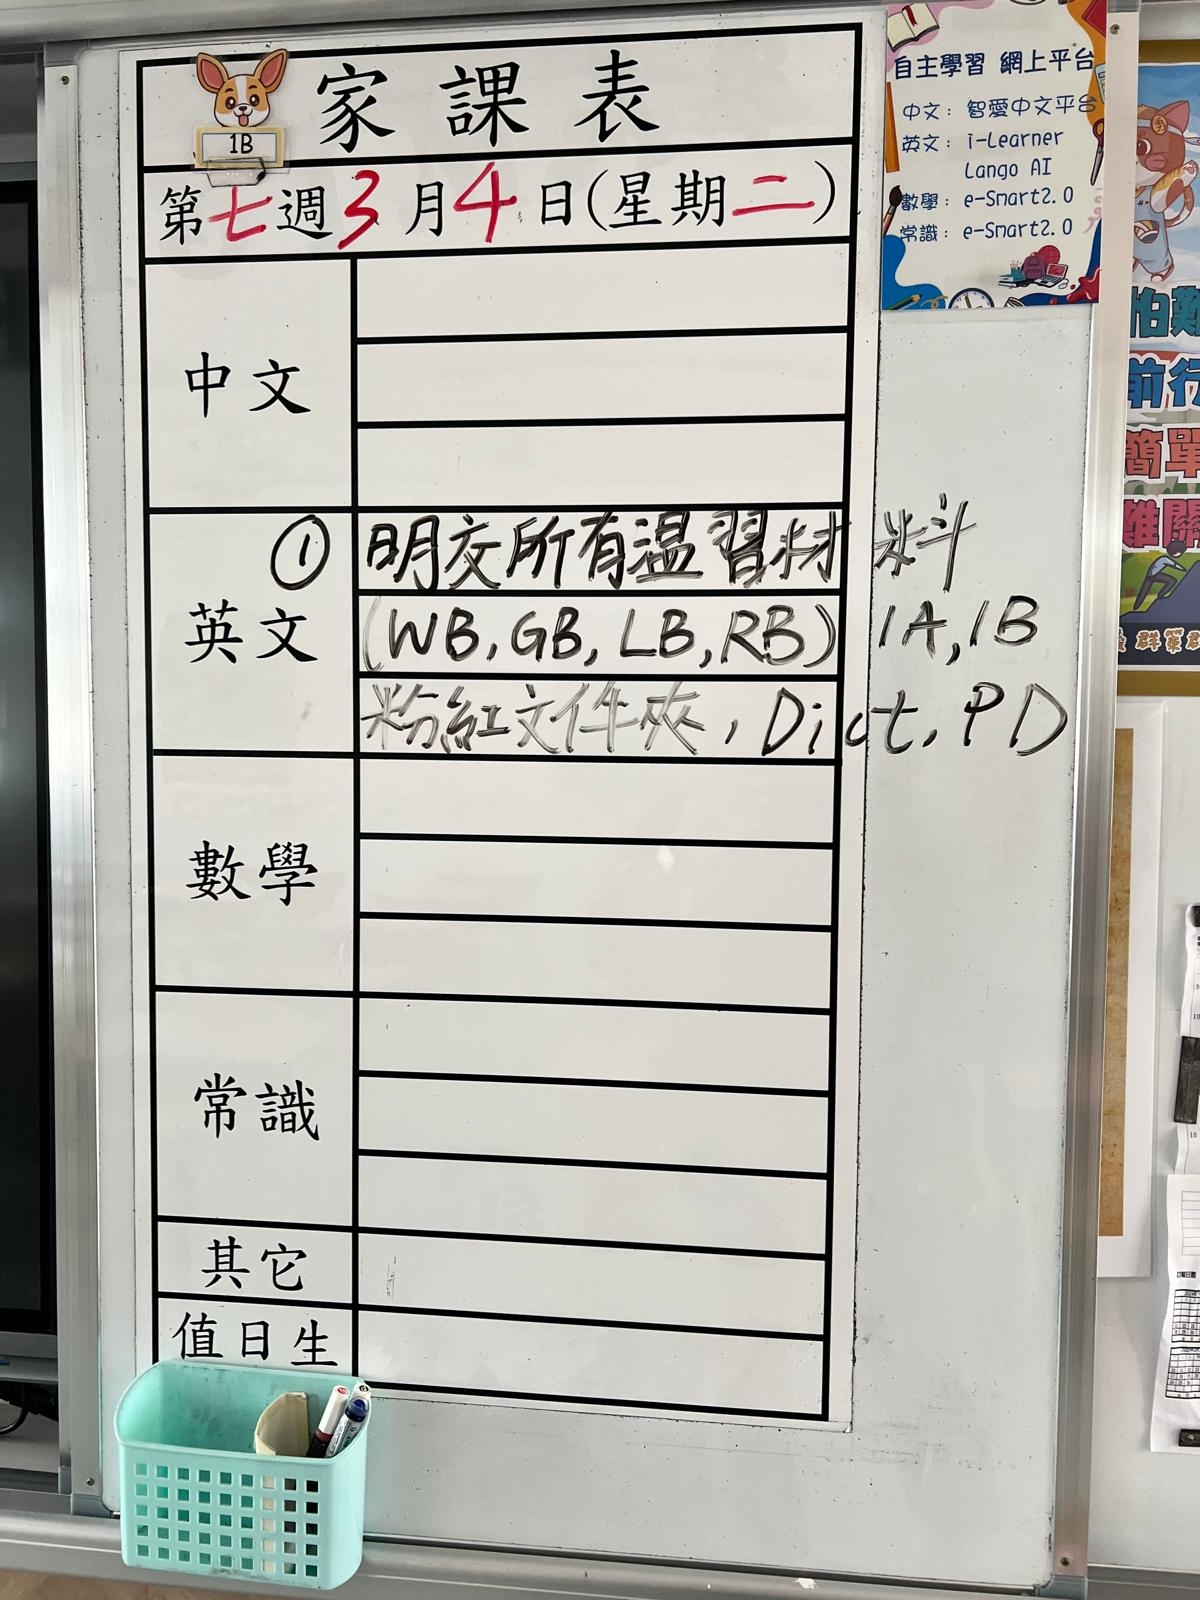 1B
家課表
第七週3月4日(星期二)
中文
英文
① 明交所有温習材料
(WB, GB, LB, RB) 1A, 1B
粉紅文件夾, Dict, PD
數學
常識
其它
值日生
自主學習 網上平台
中文: 智愛中文平台
英文: i-Learner
Lango AI
數學: e-Smart2.0
常識: e-Smart2.0
怕難
前行
簡單
難關